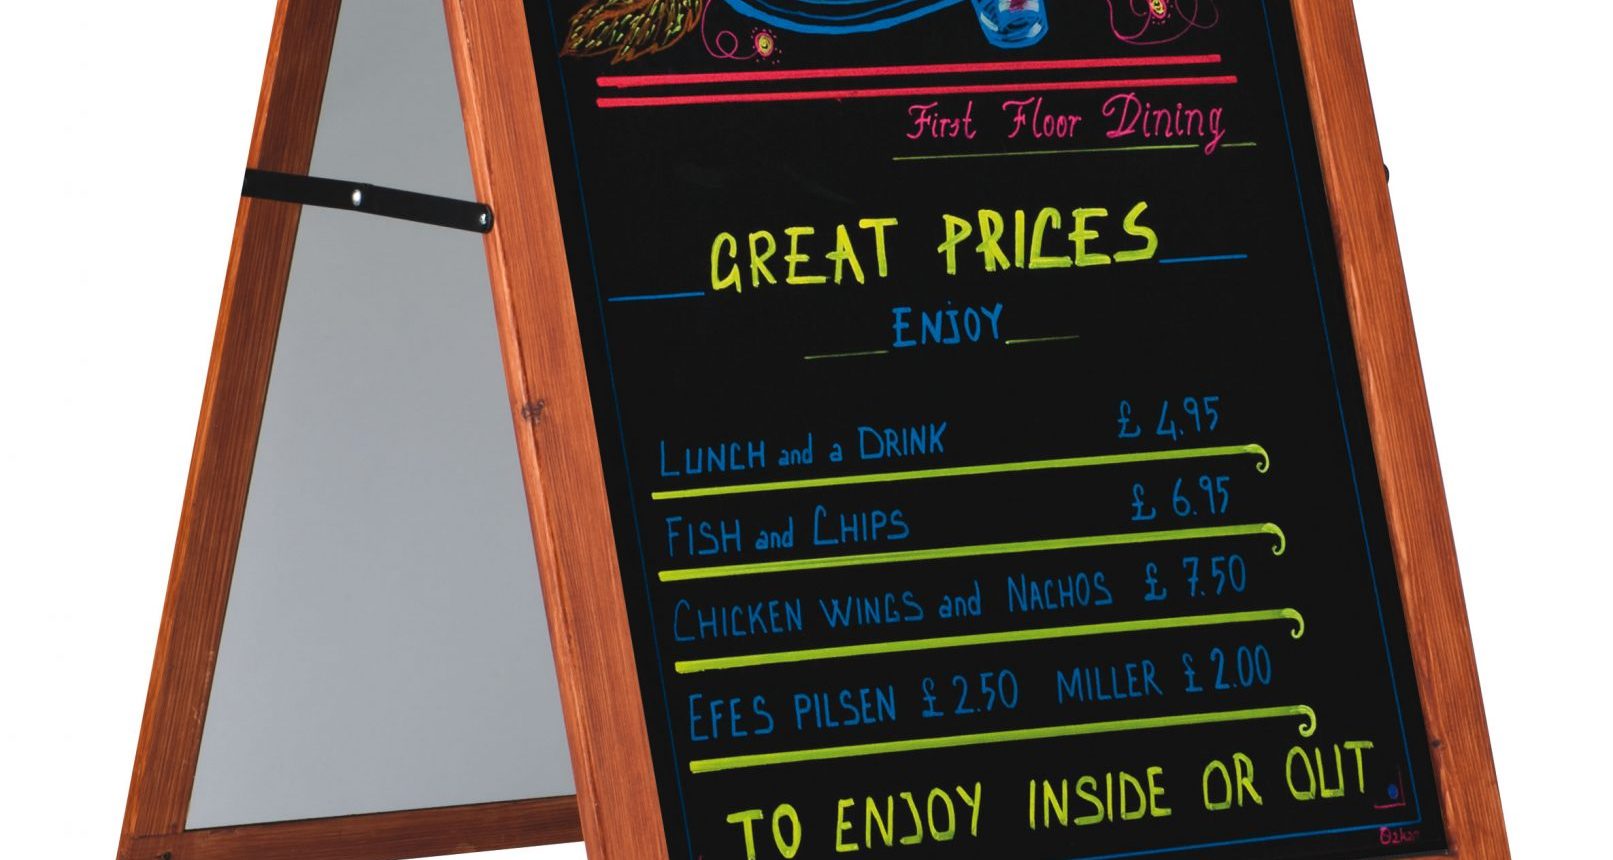 First Floor Dining
GREAT PRICES
ENJOY
LUNCH and a DRINK £ 4.95
FISH and CHIPS £ 6.95
CHICKEN WINGS and NACHOS £ 7.50
EFES PILSEN £ 2.50 MILLER £ 2.00
TO ENJOY INSIDE OR OUT
Ozkan